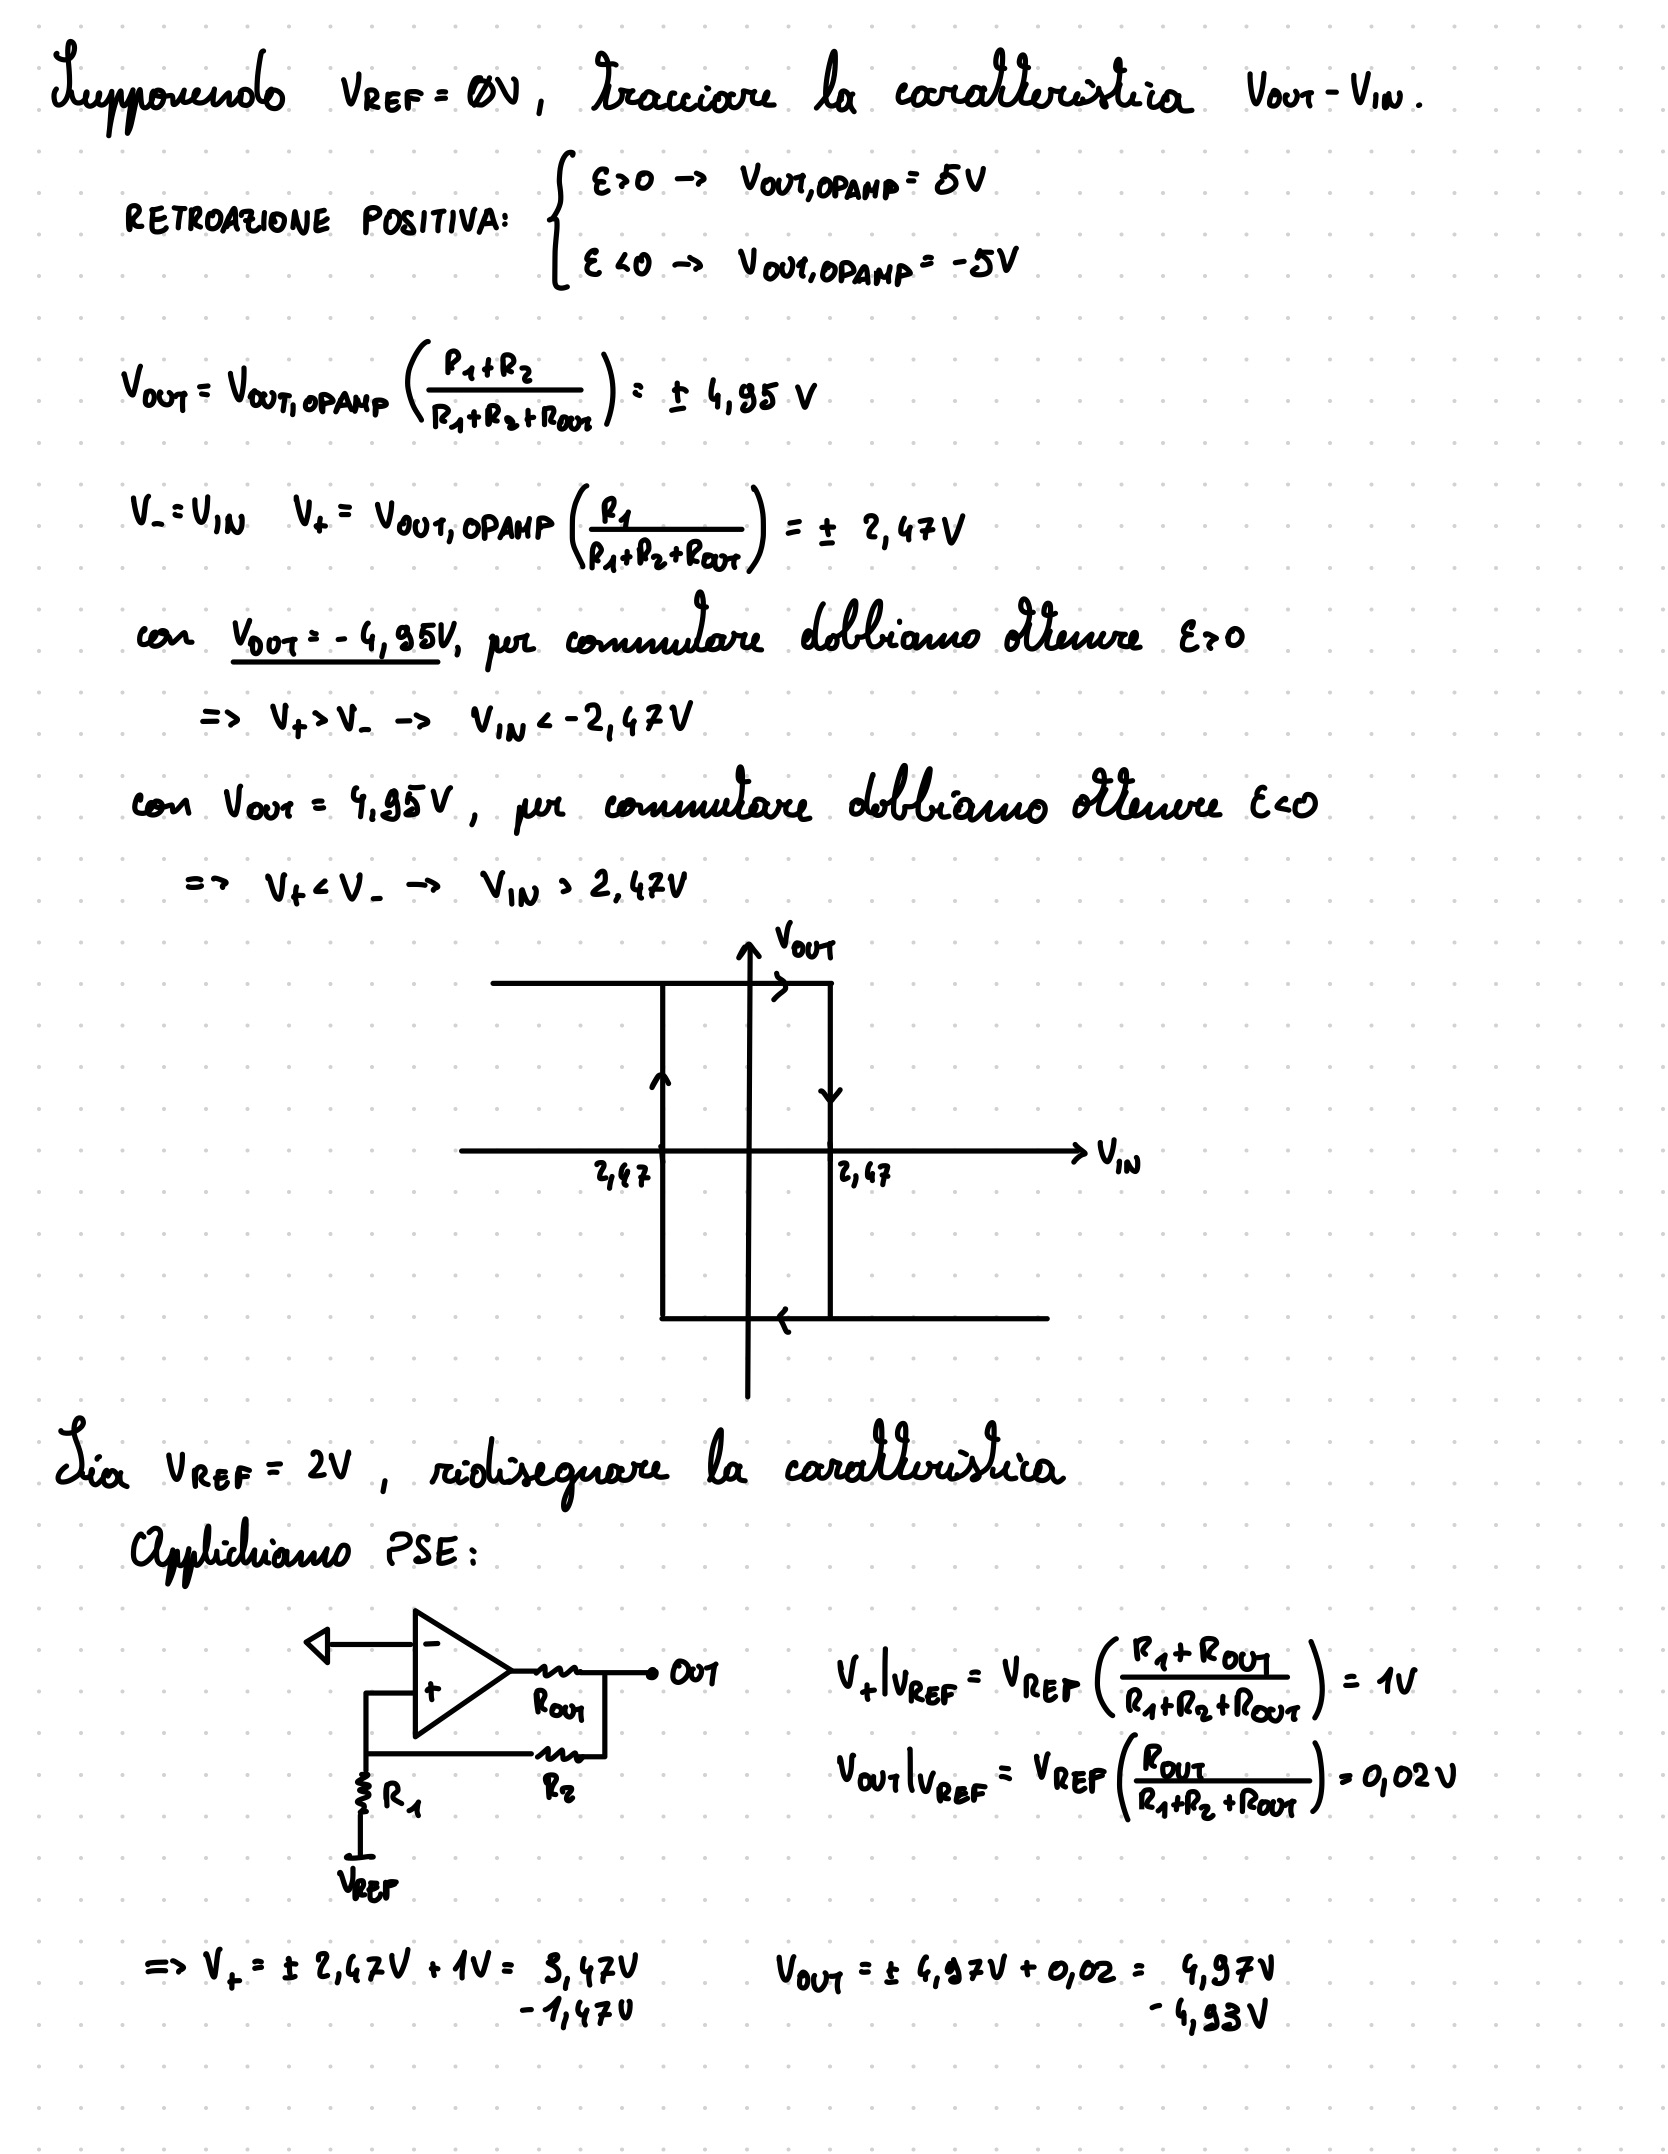 Supponendo V_REF = 0V, tracciare la caratteristica V_OUT - V_IN.
RETROAZIONE POSITIVA: { ε>0 → V_OUT,OPAMP = 5V
ε<0 → V_OUT,OPAMP = -5V
V_OUT = V_OUT,OPAMP ( (R_1+R_2) / (R_1+R_2+R_OUT) ) = ± 4,95 V
V_- = V_IN V_+ = V_OUT,OPAMP ( R_1 / (R_1+R_2+R_OUT) ) = ± 2,47V
con V_OUT = -4,95V, per commutare dobbiamo ottenere ε>0
=> V_+ > V_- → V_IN < -2,47V
con V_OUT = 4,95V, per commutare dobbiamo ottenere ε<0
=> V_+ < V_- → V_IN > 2,47V
V_OUT
V_IN
2,47 2,47
Sia V_REF = 2V, ridisegnare la caratteristica
Applichiamo PSE:
-
+
OUT
R_OUT
R_2
R_1
V_REF
V_+|V_REF = V_REF ( (R_1+R_OUT) / (R_1+R_2+R_OUT) ) = 1V
V_OUT|V_REF = V_REF ( R_OUT / (R_1+R_2+R_OUT) ) = 0,02V
=> V_+ = ± 2,47V + 1V = 3,47V
-1,47V
V_OUT = ± 4,97V + 0,02 = 4,97V
-4,93V